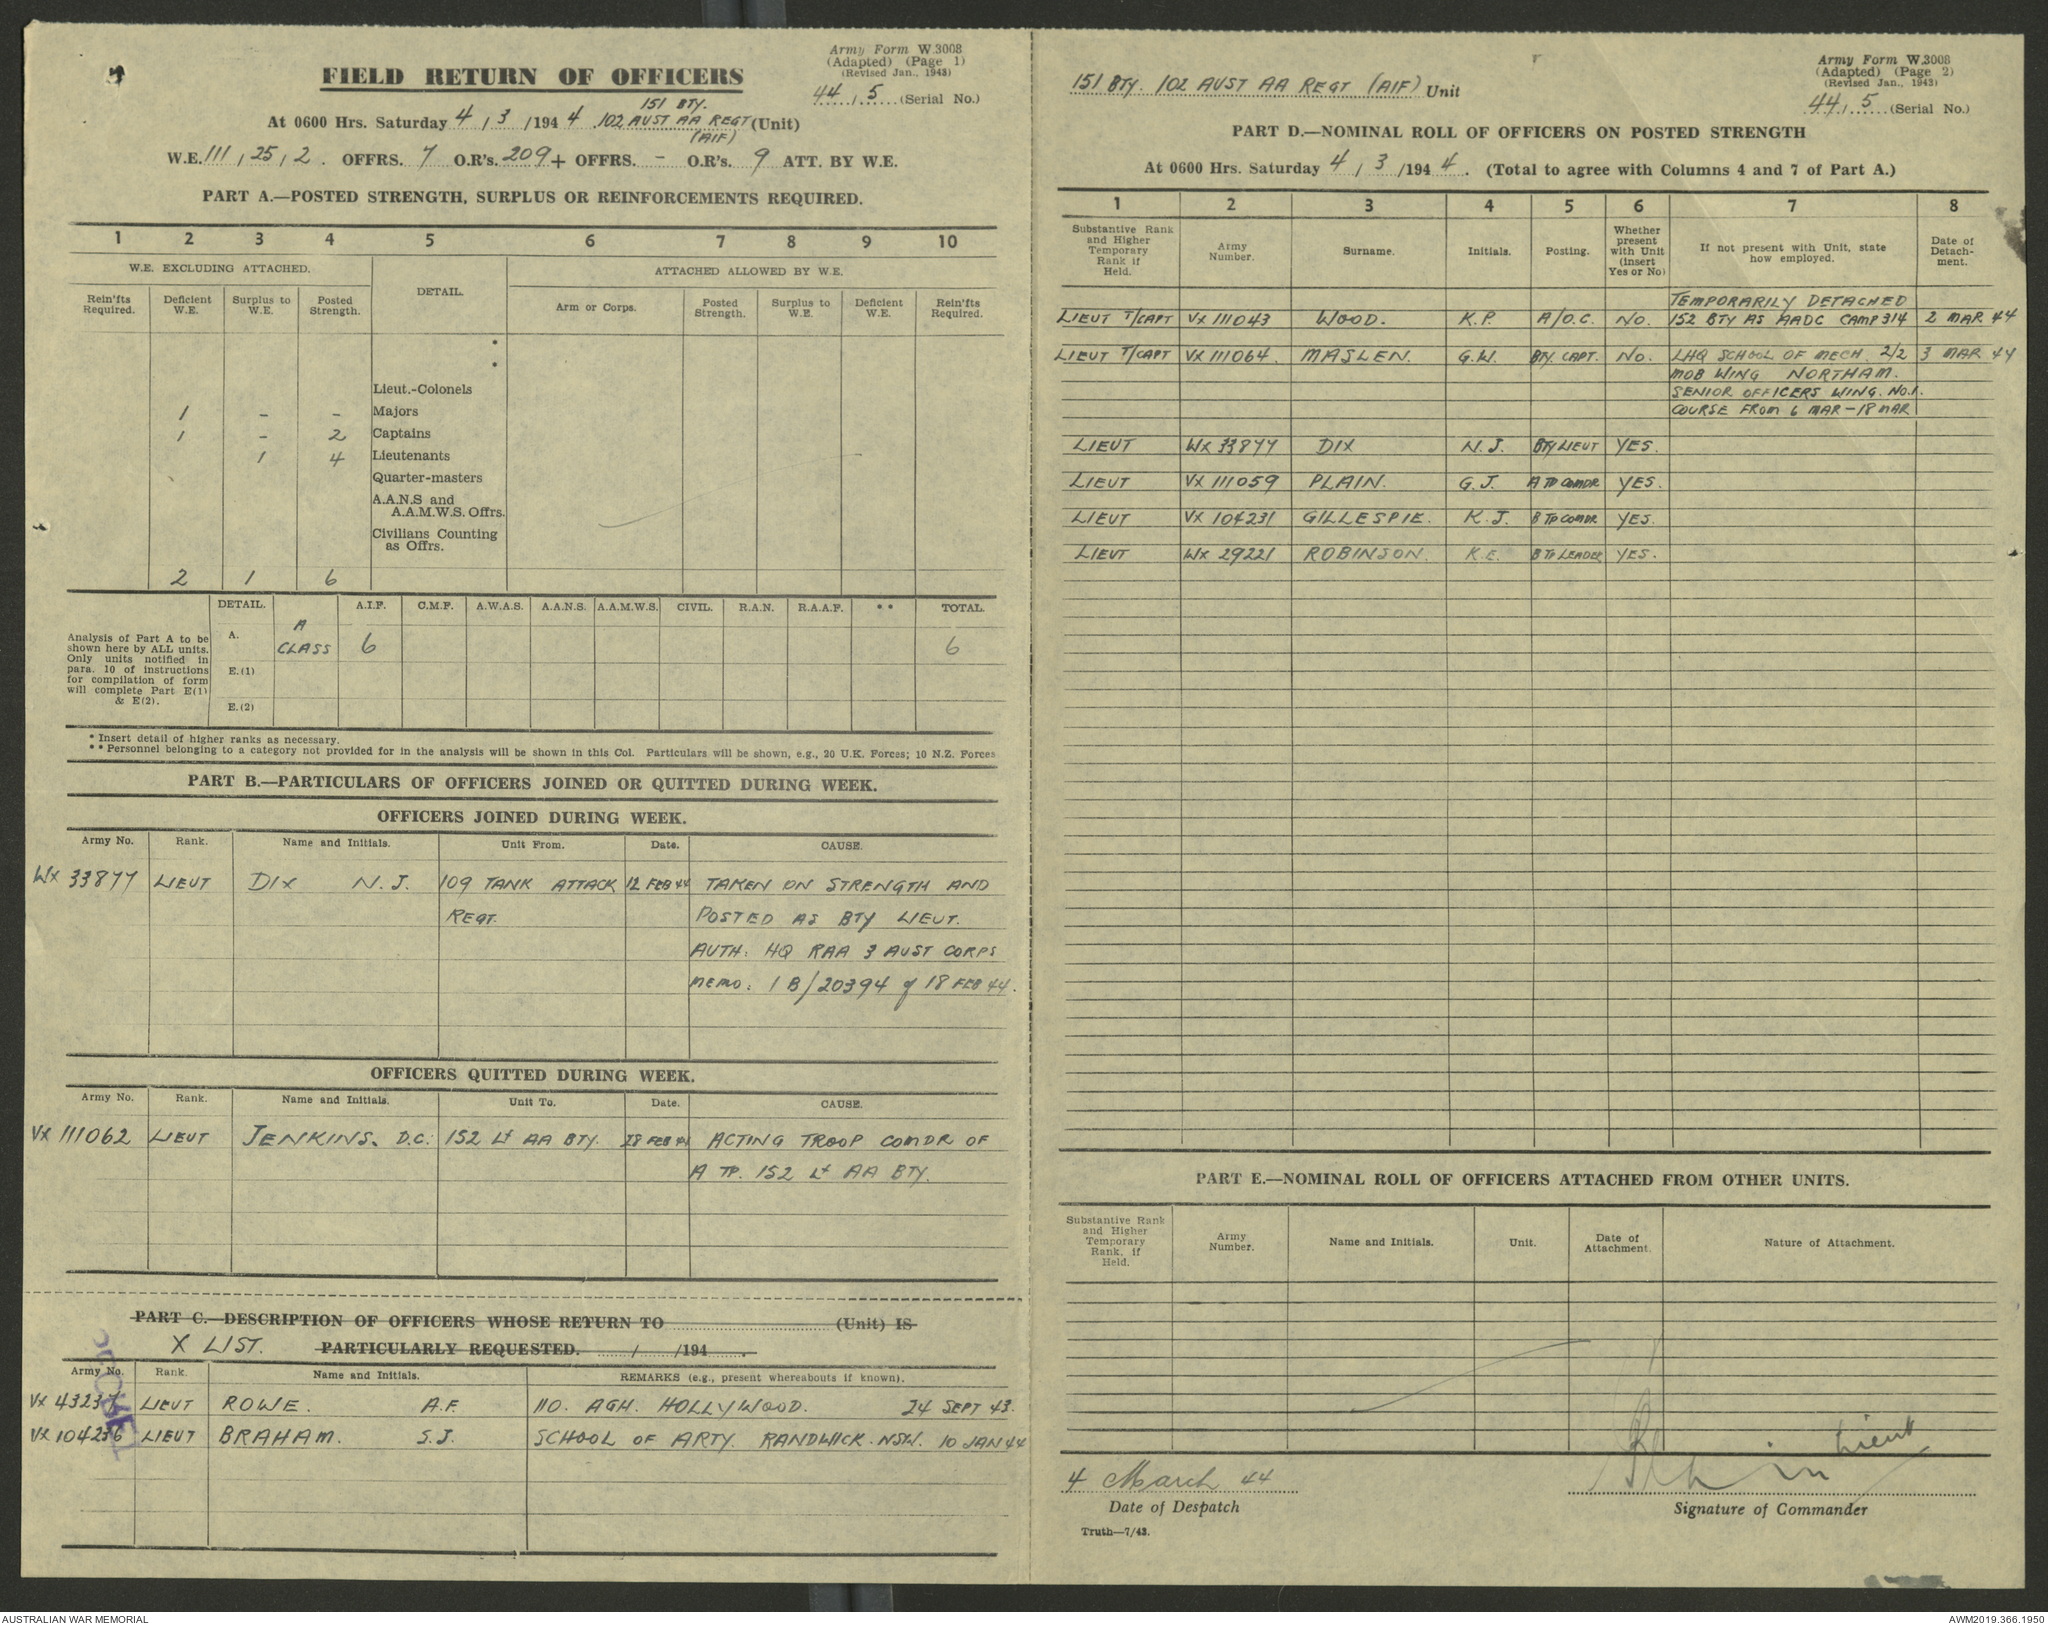 Army Form W.3008
(Adapted) (Page 1)
(Revised Jan., 1943)
FIELD RETURN OF OFFICERS
44 / 5 (Serial No.)
151 BTY.
At 0600 Hrs. Saturday 4 / 3 /194 4 . 102 AUST AA REGT (Unit)
(AIF)
W.E. 111 / 25 / 2 . OFFRS. 7 O.R's. 209 + OFFRS. - O.R's. 9 ATT. BY W.E.
PART A.—POSTED STRENGTH, SURPLUS OR REINFORCEMENTS REQUIRED.
1 2 3 4 5 6 7 8 9 10
W.E. EXCLUDING ATTACHED. DETAIL. ATTACHED ALLOWED BY W.E.
Rein'fts Required. Deficient W.E. Surplus to W.E. Posted Strength. Arm or Corps. Posted Strength. Surplus to W.E. Deficient W.E. Rein'fts Required.
*
*
Lieut.-Colonels
1 - - Majors
1 - 2 Captains
1 4 Lieutenants
Quarter-masters
A.A.N.S and
A.A.M.W.S. Offrs.
Civilians Counting
as Offrs.
2 1 6
DETAIL. A.I.F. C.M.F. A.W.A.S. A.A.N.S. A.A.M.W.S. CIVIL. R.A.N. R.A.A.F. ** TOTAL.
Analysis of Part A to be
shown here by ALL units.
Only units notified in
para. 10 of instructions
for compilation of form
will complete Part E(1)
& E(2).
A. A CLASS 6 6
E.(1)
E.(2)
* Insert detail of higher ranks as necessary.
** Personnel belonging to a category not provided for in the analysis will be shown in this Col. Particulars will be shown, e.g., 20 U.K. Forces; 10 N.Z. Forces
PART B.—PARTICULARS OF OFFICERS JOINED OR QUITTED DURING WEEK.
OFFICERS JOINED DURING WEEK.
Army No. Rank. Name and Initials. Unit From. Date. CAUSE.
WX 33877 LIEUT DIX N.J. 109 TANK ATTACK 12 FEB 44 TAKEN ON STRENGTH AND
REGT. POSTED AS BTY LIEUT.
AUTH: HQ RAA 3 AUST CORPS
MEMO: 1 B/20394 of 18 FEB 44.
OFFICERS QUITTED DURING WEEK.
Army No. Rank. Name and Initials. Unit To. Date. CAUSE.
VX 111062 LIEUT JENKINS. D.C. 152 Lt AA BTY. 28 FEB 44 ACTING TROOP COMDR OF
A TP. 152 Lt AA BTY.
PART C.—DESCRIPTION OF OFFICERS WHOSE RETURN TO (Unit) IS
X LIST. PARTICULARLY REQUESTED. / /194 .
Army No. Rank. Name and Initials. REMARKS (e.g., present whereabouts if known).
VX 43237 LIEUT ROWE. A.F. 110. AGH. HOLLYWOOD. 24 SEPT 43.
VX 104236 LIEUT BRAHAM. S.J. SCHOOL OF ARTY. RANDWICK. NSW. 10 JAN 44
Army Form W.3008
(Adapted) (Page 2)
(Revised Jan., 1943)
151 BTY. 102 AUST AA REGT (AIF) Unit
44 / 5 (Serial No.)
PART D.—NOMINAL ROLL OF OFFICERS ON POSTED STRENGTH
At 0600 Hrs. Saturday 4 / 3 /194 4 . (Total to agree with Columns 4 and 7 of Part A.)
1 2 3 4 5 6 7 8
Substantive Rank and Higher Temporary Rank if Held. Army Number. Surname. Initials. Posting. Whether present with Unit (Insert Yes or No) If not present with Unit, state how employed. Date of Detach-ment.
TEMPORARILY DETACHED
LIEUT T/CAPT VX 111043 WOOD. K.P. A/O.C. NO. 152 BTY AS AADC CAMP 314 2 MAR 44
LIEUT T/CAPT VX 111064. MASLEN. G.W. BTY. CAPT. NO. LHQ SCHOOL OF MECH. 2/2 3 MAR 44
MOB WING NORTHAM.
SENIOR OFFICERS WING. NO.1.
COURSE FROM 6 MAR - 18 MAR
LIEUT WX 33877 DIX N.J. BTY LIEUT YES.
LIEUT VX 111059 PLAIN. G.J. A TP COMDR YES.
LIEUT VX 104231 GILLESPIE. K.J. B TP COMDR YES.
LIEUT WX 29221 ROBINSON. K.E. B TP LEADER YES.
PART E.—NOMINAL ROLL OF OFFICERS ATTACHED FROM OTHER UNITS.
Substantive Rank and Higher Temporary Rank, if Held. Army Number. Name and Initials. Unit. Date of Attachment. Nature of Attachment.
Lieut
4 March 44
Date of Despatch
Signature of Commander
Truth—7/43.
AUSTRALIAN WAR MEMORIAL
AWM2019.366.1950